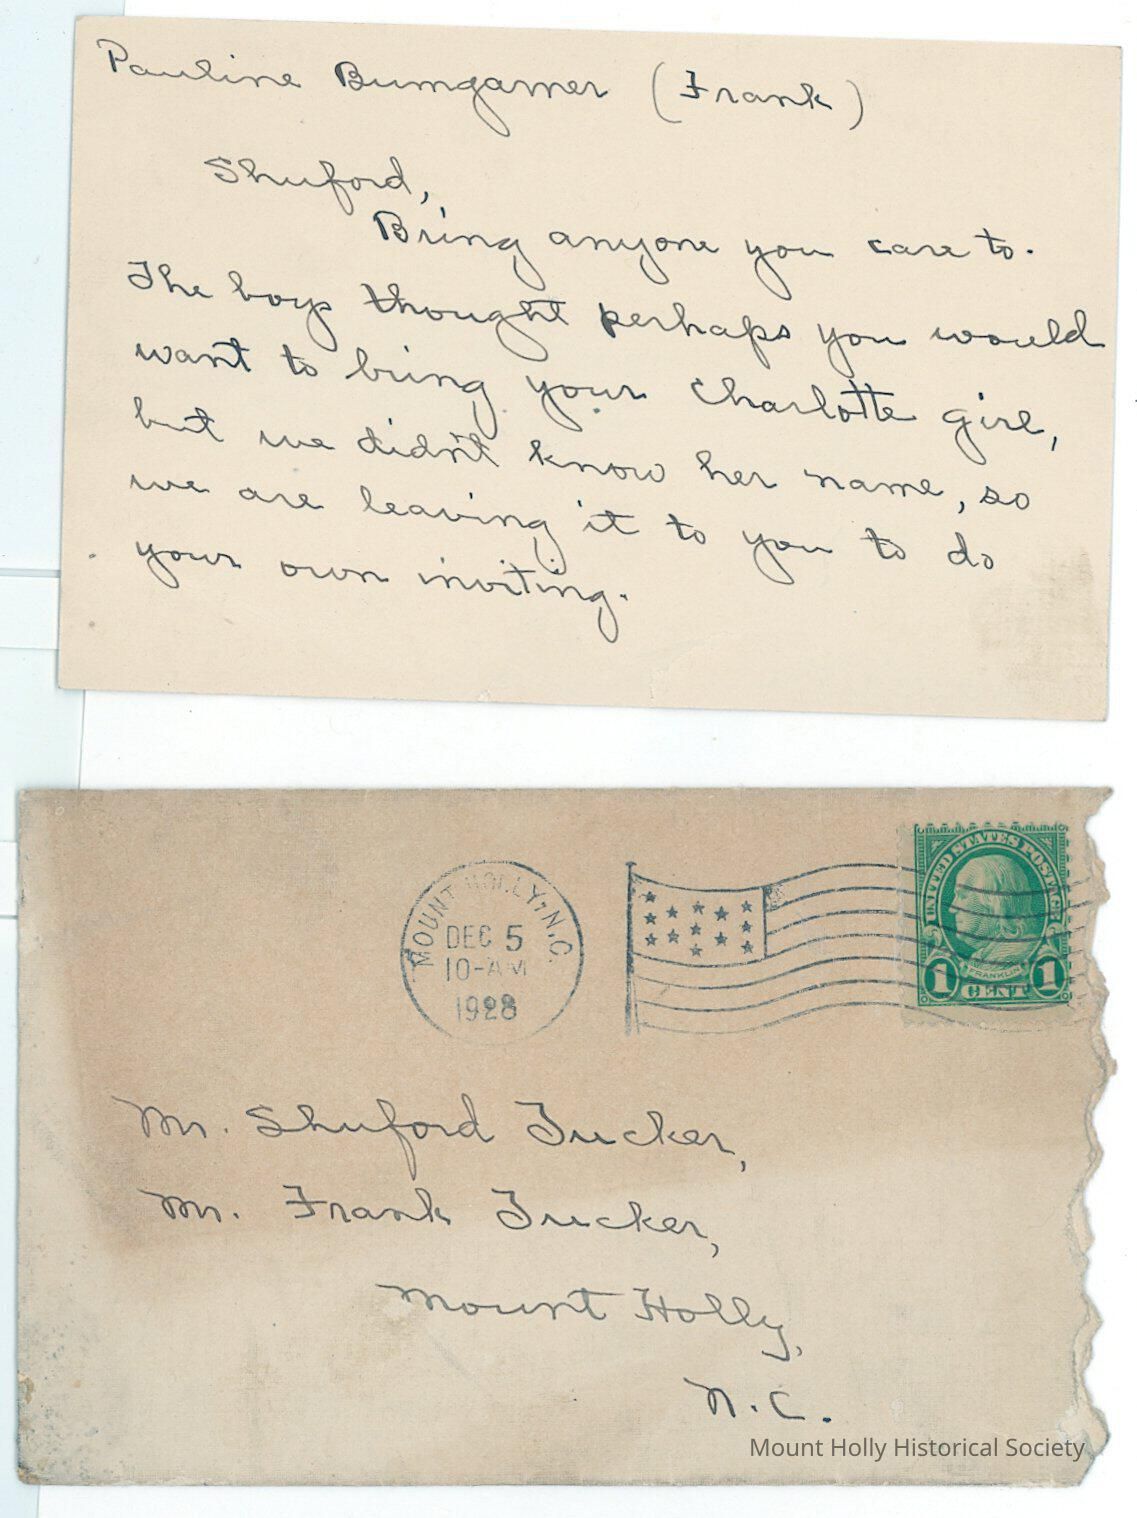 Pauline Bumgarner (Frank)
Shuford,
Bring anyone you care to.
The boys thought perhaps you would
want to bring your Charlotte girl,
but we didn't know her name, so
we are leaving it to you to do
your own inviting.
MOUNT HOLLY, N.C.
DEC 5
10-AM
1928
UNITED STATES POSTAGE
FRANKLIN
1 CENT 1
Mr. Shuford Tucker,
Mr. Frank Tucker,
Mount Holly,
N.C.
Mount Holly Historical Society